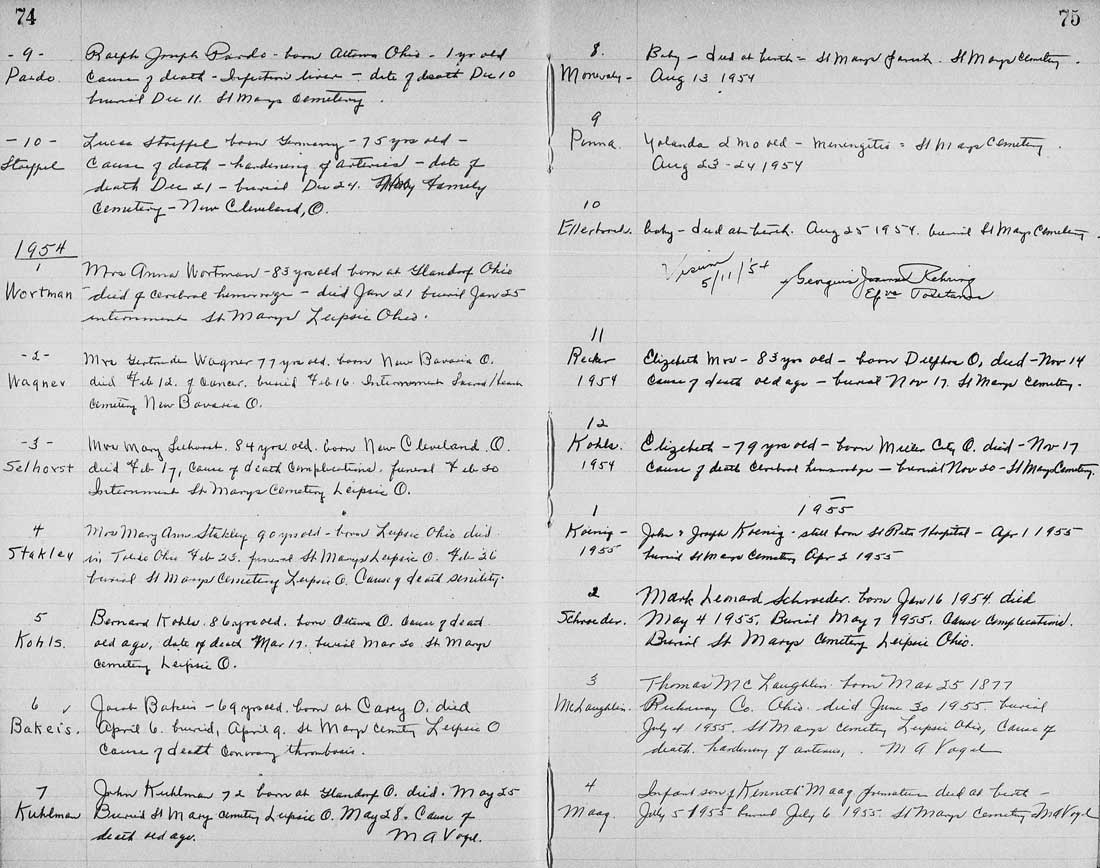 74
- 9 -
Pardo.
Ralph Joseph Pardo - born Ottawa Ohio - 1 yr old
Cause of death - Infection liver - date of death Dec 10
burial Dec 11. St Marys Cemetery.
- 10 -
Stoppel
Lucas Stoeppel born Germany - 75 yrs old -
Cause of death - hardening of arteries - date of
death Dec 21 - burial Dec 24. Holy Family
Cemetery - New Cleveland, O.
1954
1
Wortman
Mrs Anna Wortman - 83 yrs old born at Glandorf Ohio
died of cerebral hemorrage - died Jan 21 burial Jan 25
internment St Marys Leipsic Ohio.
- 2 -
Wagner
Mrs Gertrude Wagner 77 yrs old. born New Bavaria O.
died Feb 12. of Cancer. buried Feb 16. Internment Sacred Heart
Cemetery New Bavaria O.
- 3 -
Selhorst
Mrs Mary Selhorst. 84 yrs old. born New Cleveland. O.
died Feb 17, cause of death Complications. funeral Feb 20
Internment St Marys Cemetery Leipsic O.
4
Stakley
Mrs Mary Ann Stakley 90 yrs old - born Leipsic Ohio died
in Toledo Ohio Feb 23. funeral St Marys Leipsic O. Feb 26
burial St Marys Cemetery Leipsic O. Cause of death senility.
5
Kohls.
Bernard Kohls. 86 yrs old. born Ottawa O. Cause of death
old age, date of death Mar 17. burial Mar 20 St Marys
Cemetery Leipsic O.
6
Bakeis.
Jacob Bakeis - 69 yrs old. born at Carey O. died
April 6. buried, April 9. St Marys Cemetery Leipsic O
Cause of death Coronary thrombosis.
7
Kuhlman
John Kuhlman 72 born at Glandorf O. died. May 25
Buried St Marys Cemetery Leipsic O. May 28. Cause of
death old age. M A Vogel.
75
8.
Baby - died at birth = St Marys parish. St Marys Cemetery.
Aug 13 1954
9
Penna.
Yolanda 2 mo old - Meningetis = St Marys Cemetery.
Aug 23 - 24 1954
10
Ellerbrock.
baby - died at birth. Aug 25 1954. burial St Marys Cemetery.
Visum
5/11/54
Georgius Joannes Rehring
11
Recker
1954
Elizabeth Mrs - 83 yrs old - born Delphos O, died - Nov 14
Cause of death old age - burial Nov 17. St Marys Cemetery.
12
Kohls.
1954
Elizabeth - 79 yrs old - born Miller City O. died - Nov 17
Cause of death Cerebral hemorrage - burial Nov 20 - St Marys Cemetery.
1955
1
Koenig -
1955
John & Joseph Koenig - still born St Ritas Hospital - Apr 1 1955
burial St Marys Cemetery Apr 2 1955
2
Schroeder.
Mark Leonard Schroeder. born Jan 16 1954. died
May 4 1955. Burial May 7 1955. Cause complications.
Burial St Marys Cemetery Leipsic Ohio.
3
McLaughlin.
Thomas McLaughlin born Mar 25 1877
Co. Ohio. died June 30 1955. burial
July 4 1955. St Marys Cemetery Leipsic Ohio, Cause of
death. hardening of arteries, . M A Vogel
4
Maag.
Infant son of Kenneth Maag premature died at birth -
July 5 1955 buried July 6 1955. St Marys Cemetery M A Vogel